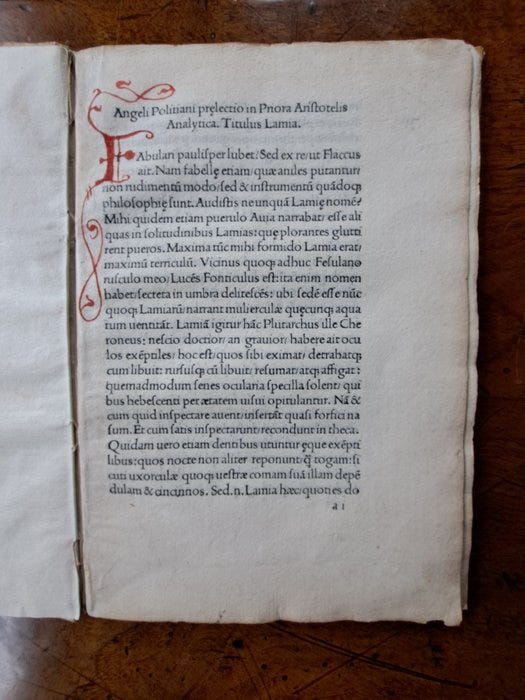 Angeli Politiani pręlectio in Priora Aristotelis
Analytica. Titulus Lamia.
FAbulari paulisper lubet/ Sed ex re/ut Flaccus
ait. Nam fabellę etiam/ quæ aniles putantur/
non rudimentũ modo/ sed & instrumentũ quãdoqꝫ
philosophię sunt. Audistis ne unquã Lamię nomẽ?
Mihi quidem etiam puerulo Auia narrabat/ esse ali
quas in solitudinibus Lamias: quę plorantes glutti
rent pueros. Maxima tũc mihi formido Lamia erat/
maximũ terriculũ. Vicinus quoqꝫ adhuc Fesulano
rusculo meo/ Lucẽs Fonticulus est: ita enim nomen
habet/ secreta in umbra delitescẽs: ubi sedẽ esse nũc
quoqꝫ Lamiarũ/ narrant mulierculæ quęcunqꝫ aqua
tum uentitãt. Lamiã igitur hãc Plutarchus ille Che
roneus: nescio doctior/ an grauior/ habere ait ocu
los exẽptiles/ hoc est/ quos sibi eximat/ detrahatqꝫ
cum libuit: rursusqꝫ cũ libuit/ resumat/ atqꝫ affigat:
quemadmodum senes ocularia specilla solent/ qui
bus hebescenti per ætatem uisui opitulantur. Nã &
cum quid inspectare auent/ insertãt quasi forfici na
sum. Et cum satis inspectarunt/ recondunt in theca.
Quidam uero etiam dentibus utuntur ęque exẽpti
libus: quos nocte non aliter reponunt/ q̃ togam: si
cuti uxorculæ quoqꝫ uestræ comam suã illam depẽ
dulam & cincinnos. Sed.n. Lamia hæc/ quoties do
a i